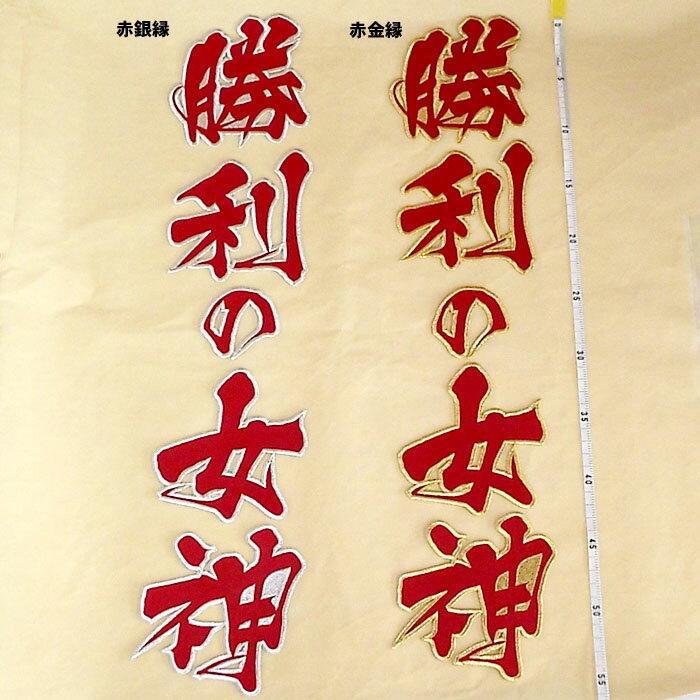 赤銀縁
赤金縁
勝利の女神
勝利の女神
0
5
10
15
20
25
30
35
40
45
50
55